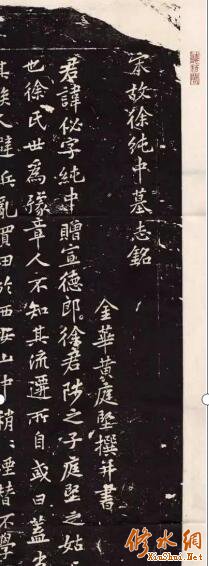 宋故徐純中墓志銘
金華黃庭堅撰并書
君諱佖字純中贈宣德郎徐君陟之子庭堅之姑
也徐氏世爲豫章人不知其流遷所自或曰蓋
其族人避兵亂買田於西安山中稍〻堙替不學
修水网
XiuShui.Net